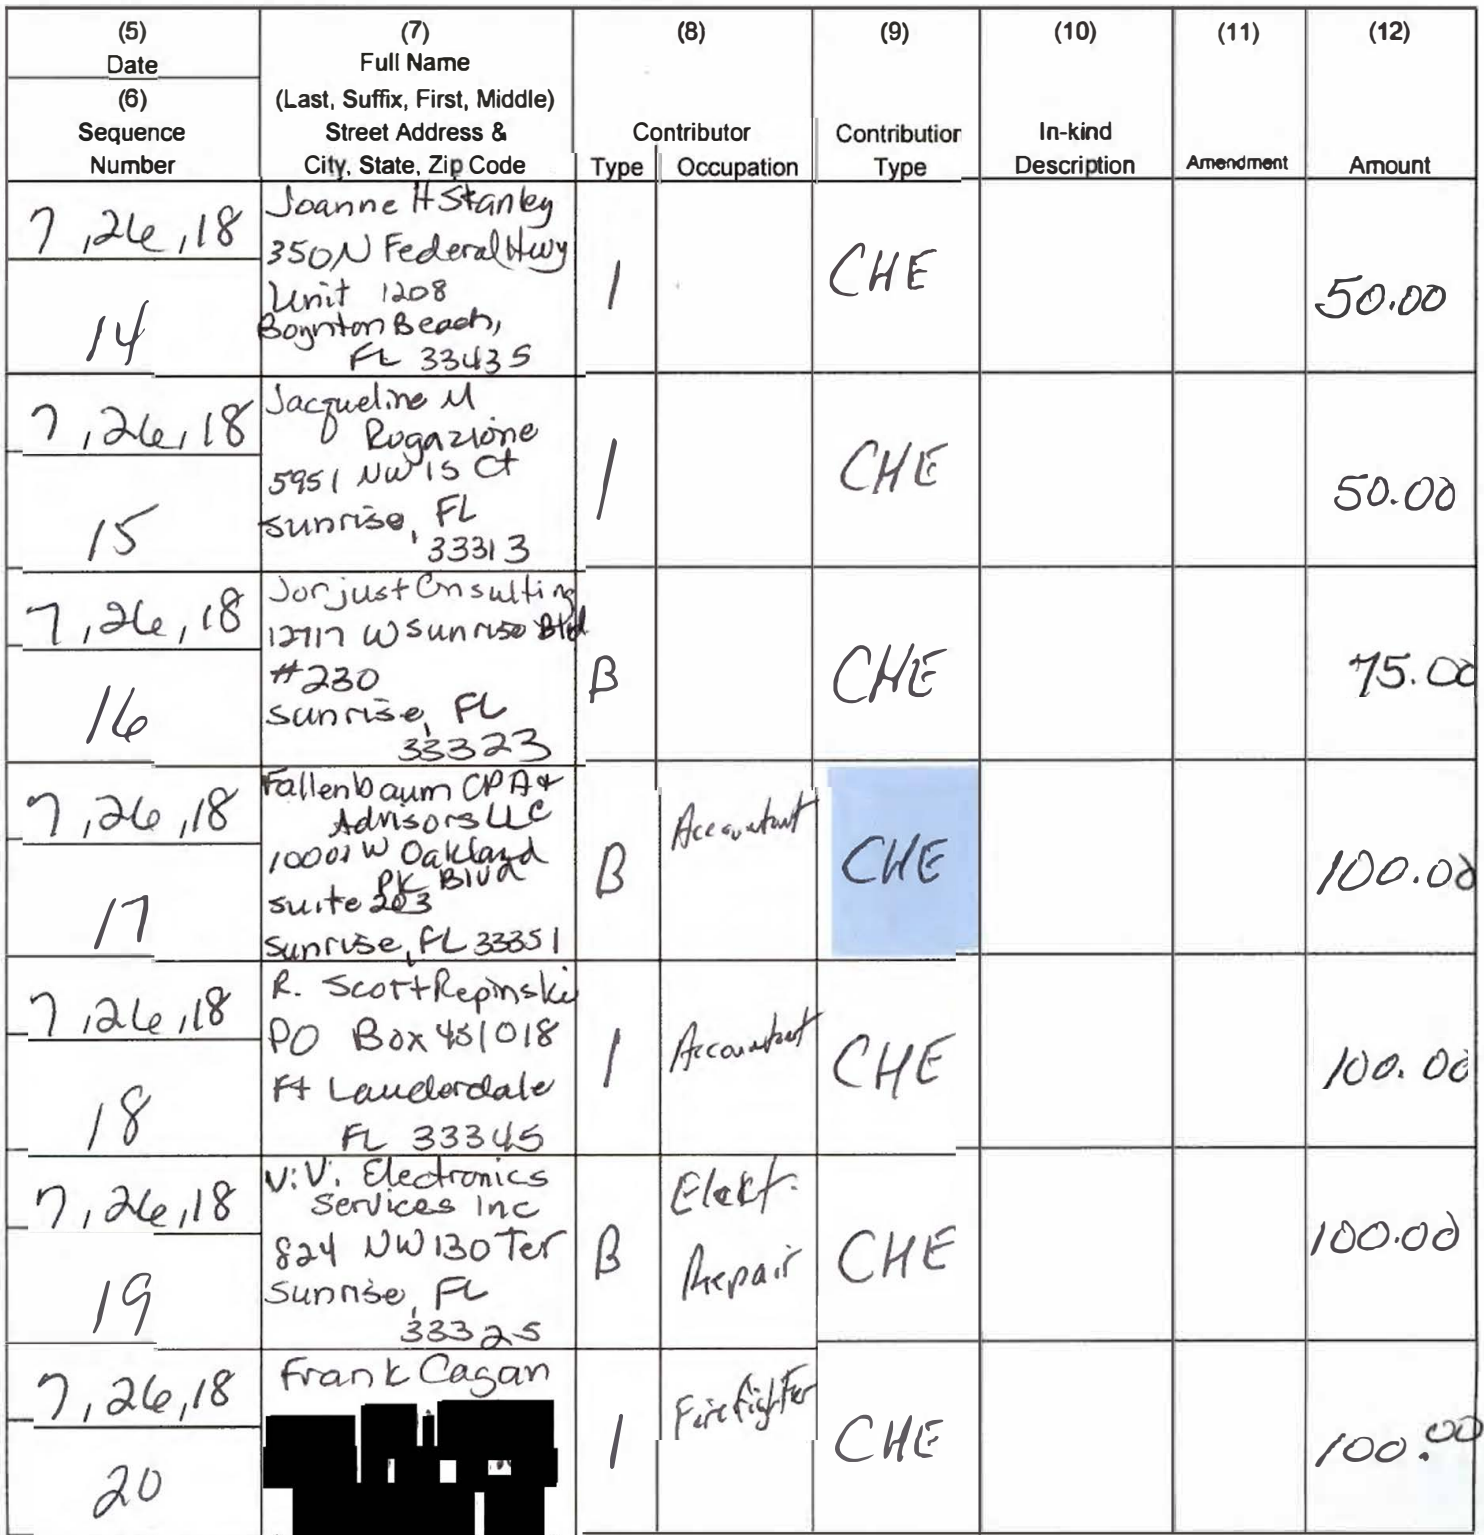 (5) (7) (8) (9) (10) (11) (12)
Date Full Name
(6) (Last, Suffix, First, Middle)
Sequence Street Address & Contributor Contribution In-kind
Number City, State, Zip Code Type Occupation Type Description Amendment Amount
7,26,18
14
Joanne H Stanley
350 N Federal Hwy
Unit 1208
Boynton Beach,
FL 33435
I CHE 50.00
7,26,18
15
Jacqueline M
Rogazione
5951 NW 15 Ct
Sunrise, FL
33313
I CHE 50.00
7,26,18
16
Jorjust Consulting
12717 W Sunrise Blvd
#230
Sunrise, FL
33323
B CHE 75.00
7,26,18
17
Fallenbaum CPA &
Advisors LLC
10001 W Oakland
PK Blvd
Suite 203
Sunrise, FL 33351
B Accountant CHE 100.00
7,26,18
18
R. Scott Repinski
PO Box 451018
Ft Lauderdale
FL 33345
I Accountant CHE 100.00
7,26,18
19
V.V. Electronics
Services Inc
824 NW 130 Ter
Sunrise, FL
33325
B Elekt.
Repair CHE 100.00
7,26,18
20
Frank Cagan
I Firefighter CHE 100.00